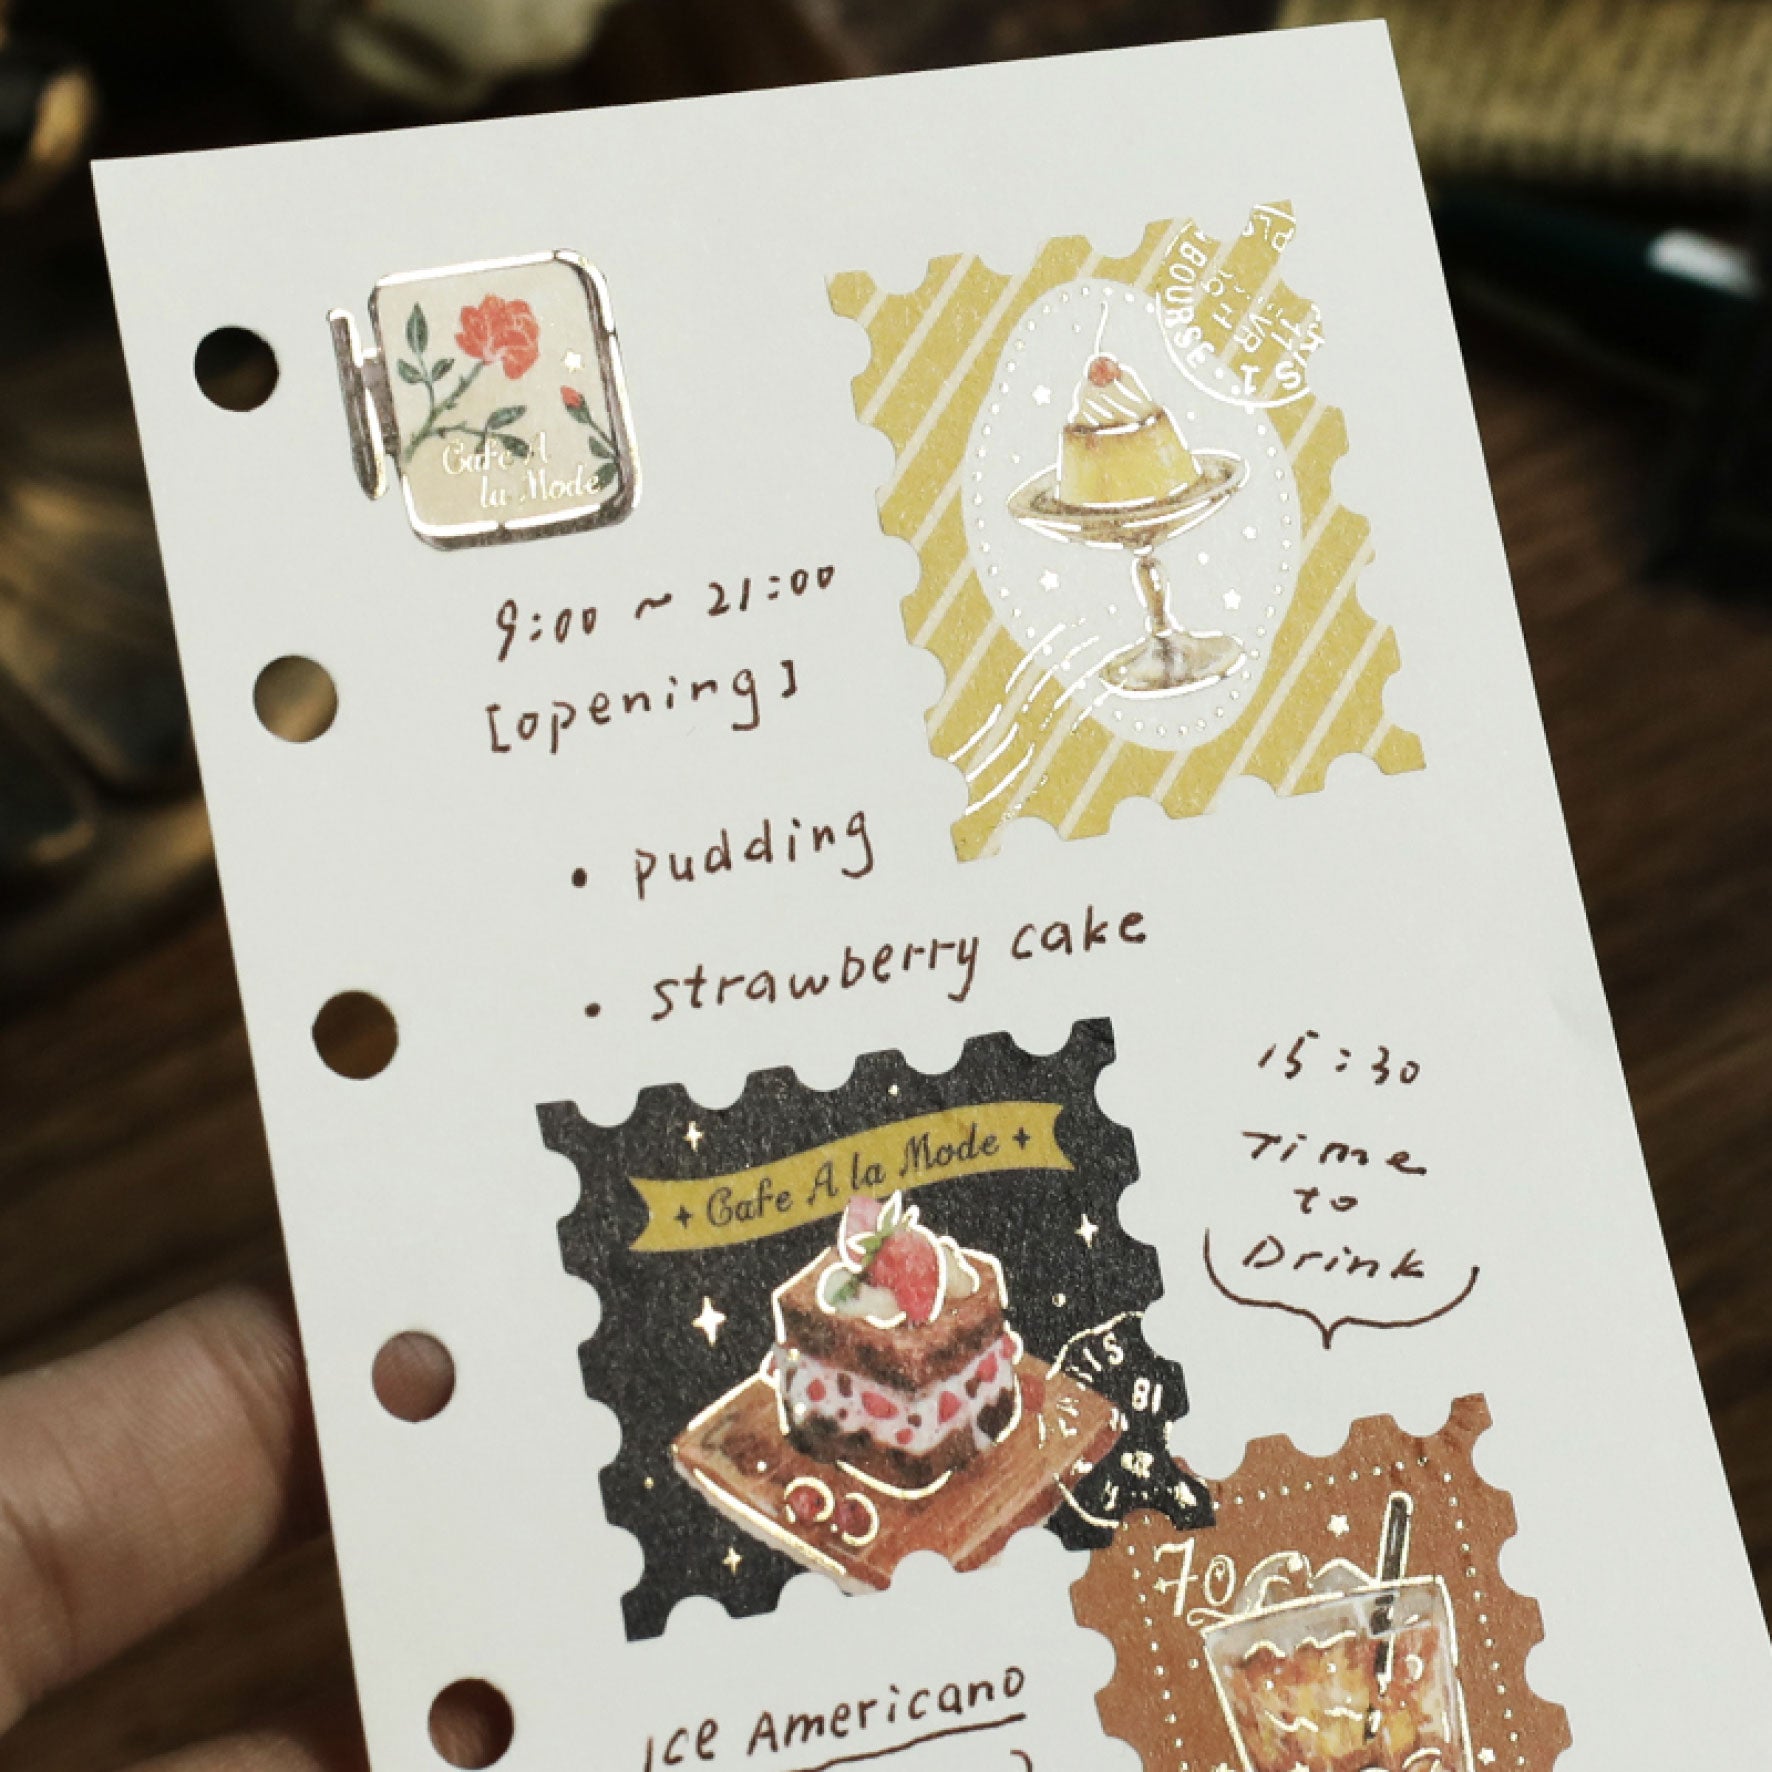 Cafe A
la Mode
BOURSE
9:00 ~ 21:00
[opening]
• pudding
• strawberry cake
Cafe A la Mode
15:30
Time
to
Drink
18
70
Ice Americano